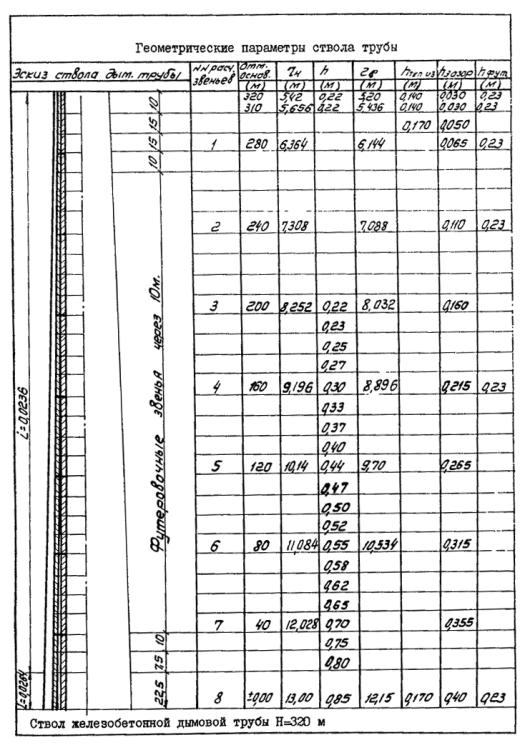 Геометрические параметры ствола трубы
Эскиз ствола дым. трубы NN расч. звеньев Отм. основ. (м) rн (м) h (м) rв (м) hтеп из (м) hзазор (м) hфут. (м)
320 5,42 0,22 5,20 0,140 0,030 0,23
10 310 5,656 0,22 5,436 0,140 0,030 0,23
15 0,170 0,050
15 1 280 6,364 6,144 0,065 0,23
10
2 240 7,308 7,088 0,110 0,23
Футеровочные звенья через 10м.
3 200 8,252 0,22 8,032 0,160
0,23
0,25
0,27
4 160 9,196 0,30 8,896 0,215 0,23
0,33
0,37
i=0,0236
0,40
5 120 10,14 0,44 9,70 0,265
0,47
0,50
0,52
6 80 11,084 0,55 10,534 0,315
0,58
0,62
0,65
7 40 12,028 0,70 0,355
10 0,75
7,5 0,80
i=0,0264
22,5 8 ±0,00 13,00 0,85 12,15 0,170 0,40 0,23
Ствол железобетонной дымовой трубы Н=320 м